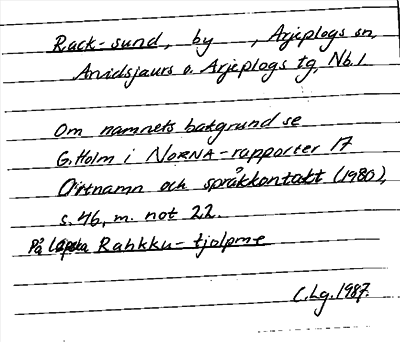 Rack-sund, by , Arjeplogs sn,
Arvidsjaurs o. Arjeplogs tg, Nb. l.
Om namnets bakgrund se
G. Holm i NORNA-rapporter 17
Ortnamn och språkkontakt (1980),
s. 46, m. not 22.
På lapska Rahkku-tjolpme
C.Lg. 1987.